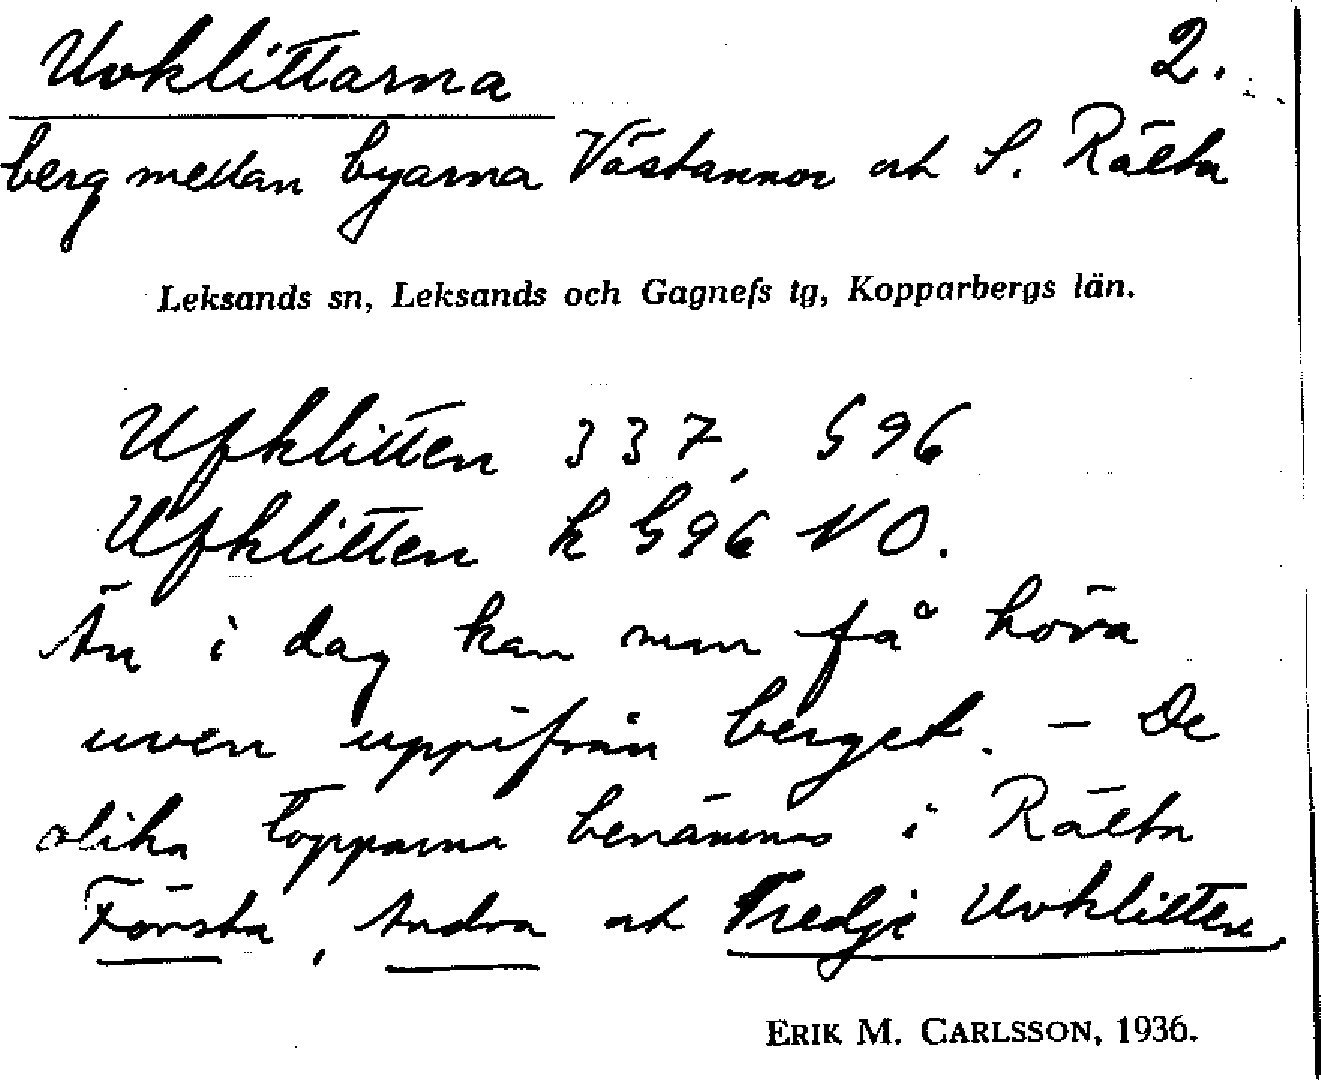 Uvklittarna 2.
berg mellan byarna Västannor och S. Rälta
Leksands sn, Leksands och Gagnefs tg, Kopparbergs län.
Ufklitten 337, G96
Ufklitten k G96 NO.
Än i dag kan man få höra
uven uppifrån berget. — De
olika topparna benämnas i Rälta
Första, Andra och Tredje Uvklitten
ERIK M. CARLSSON, 1936.